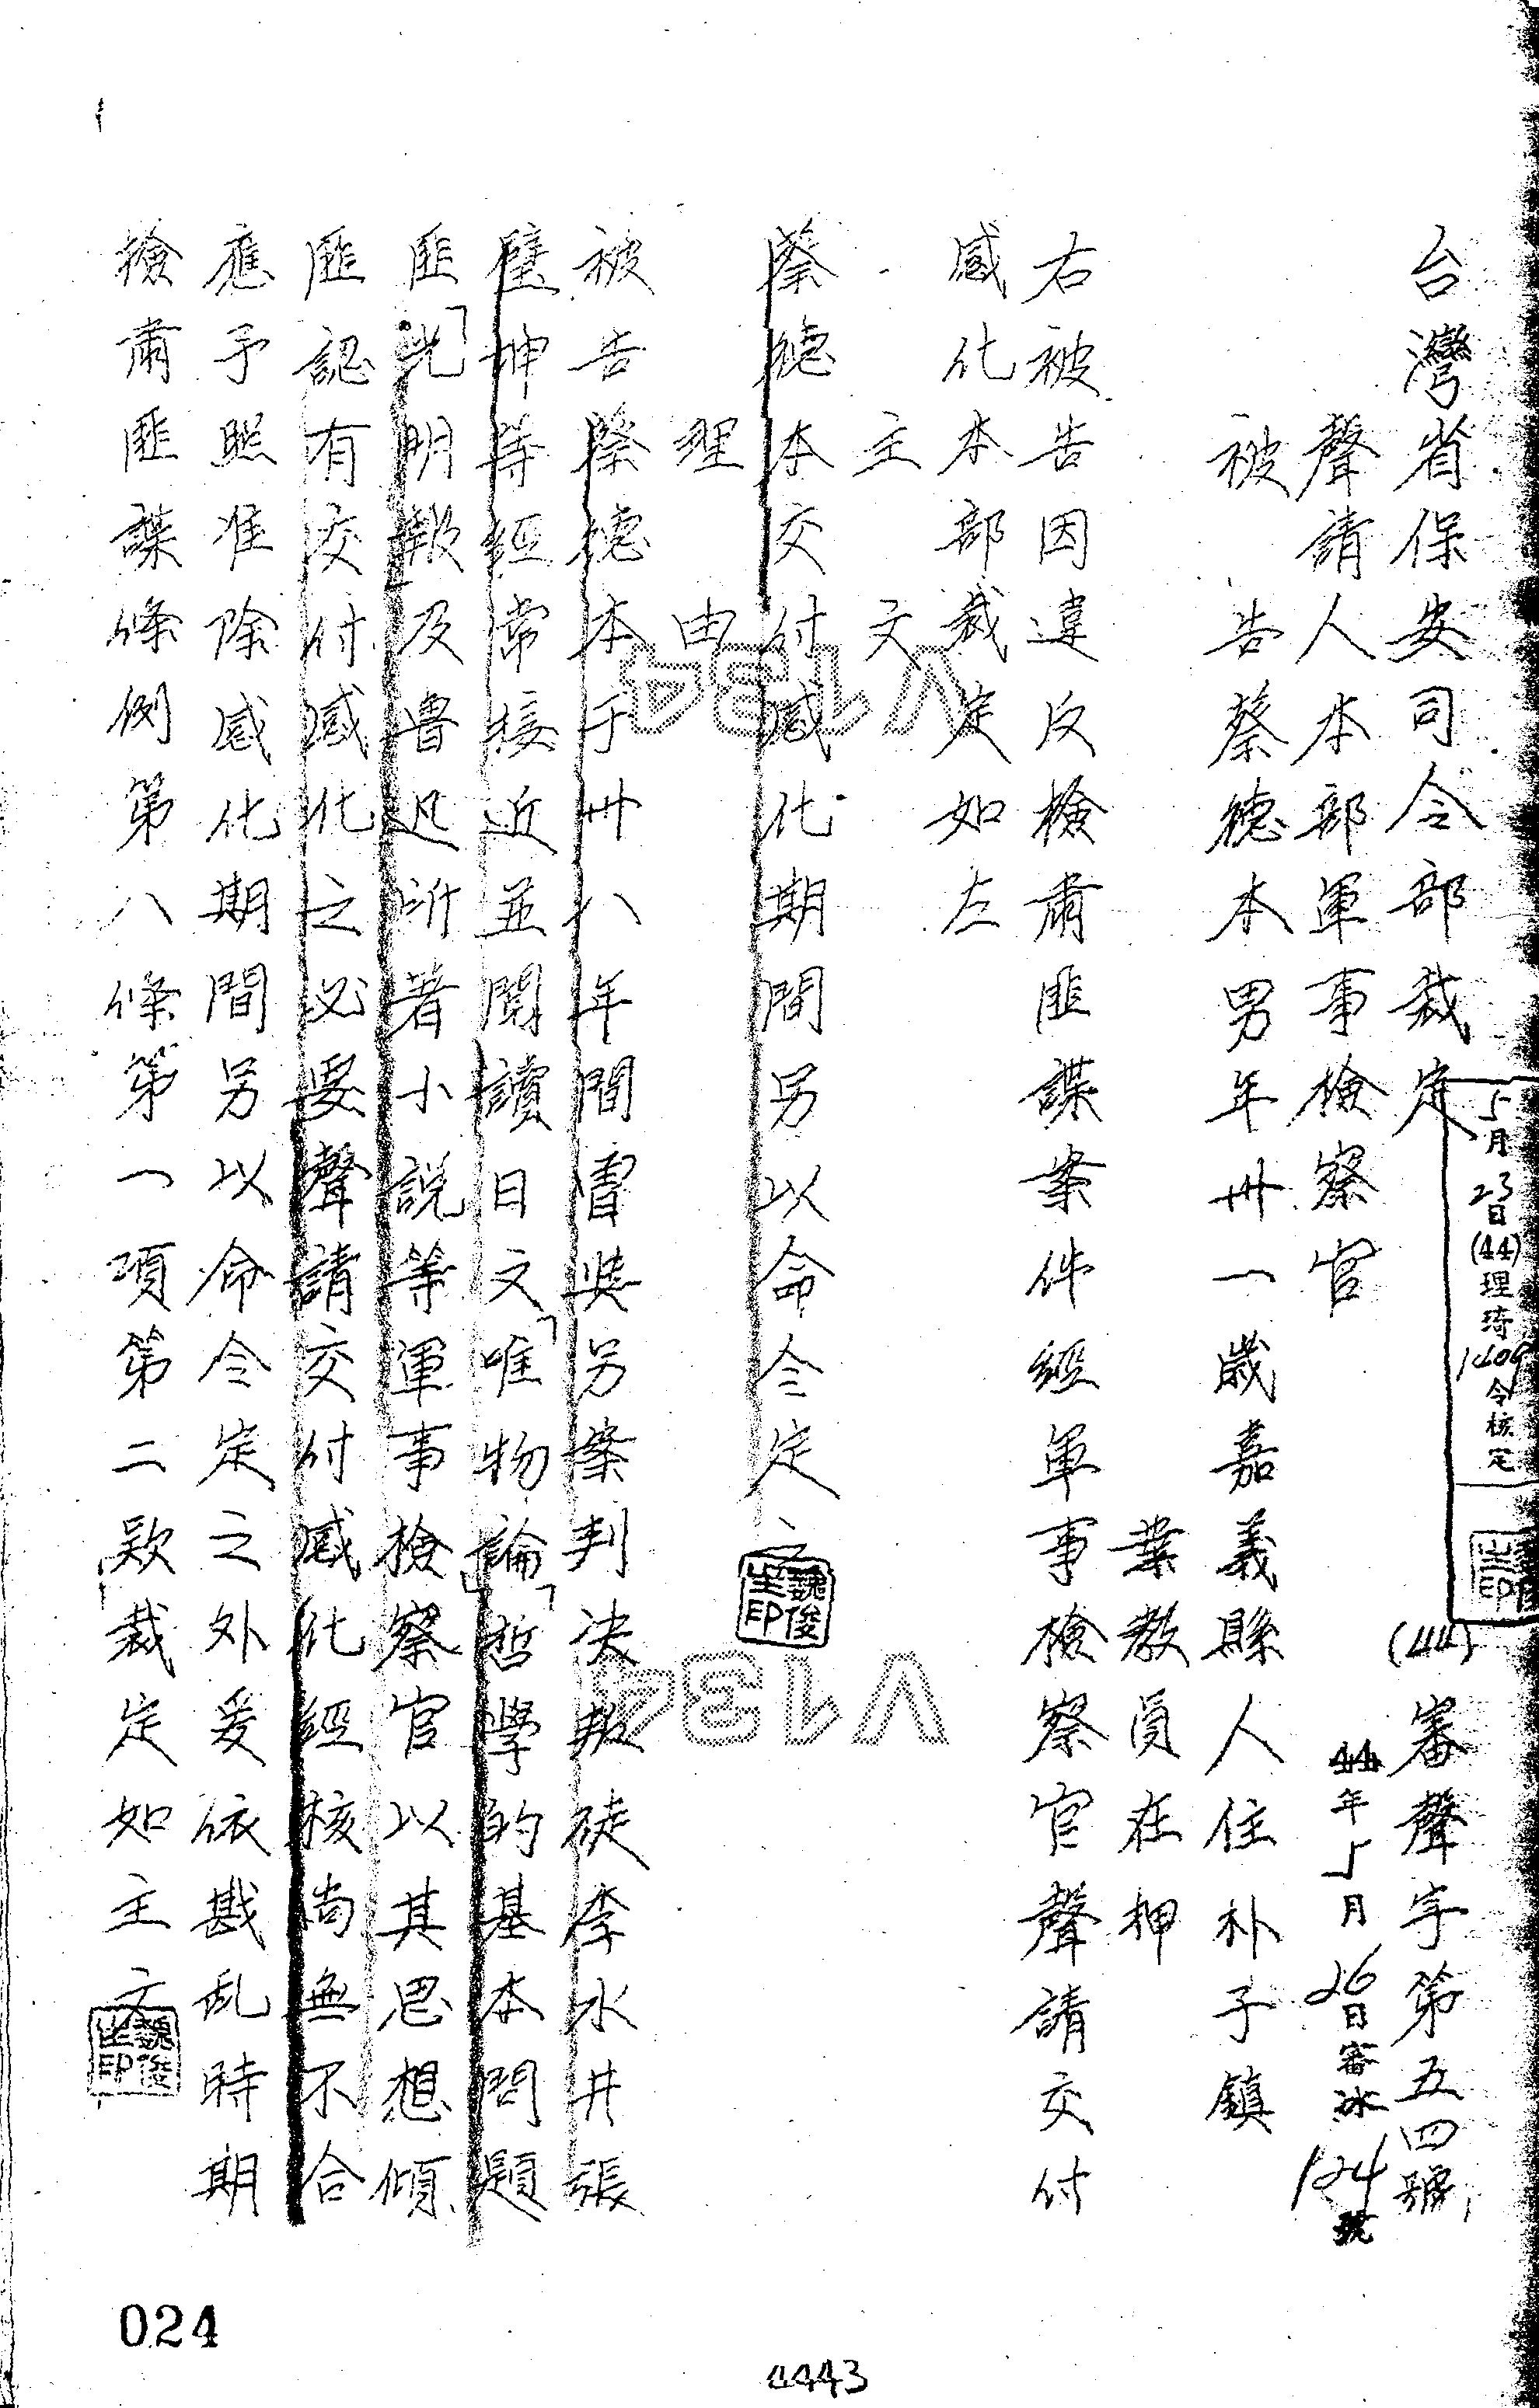 台灣省保安司令部裁定
(44)審聲字第五四號
5月23日(44)理琦令核定
44年5月26日審冰124號
聲請人本部軍事檢察官
被告蔡德本男年卅一歲嘉義縣人住朴子鎮
業教員在押
右被告因違反檢肅匪諜案件經軍事檢察官聲請交付
感化本部裁定如左
主文
蔡德本交付感化期間另以命令定之
魏俊坐印
理由
被告蔡德本于卅八年間曾與另案判決叛徒李水井張
璧坤等經常接近並閱讀日文「唯物論」「哲學的基本問題」
匪「光明報及魯迅所著小說等軍事檢察官以其思想傾
匪認有交付感化之必要聲請交付感化經核尚無不合
應予照准除感化期間另以命令定之外爰依戡乱時期
檢肅匪諜條例第八條第一項第二款裁定如主文
魏俊坐印
024
4443
V134
V134